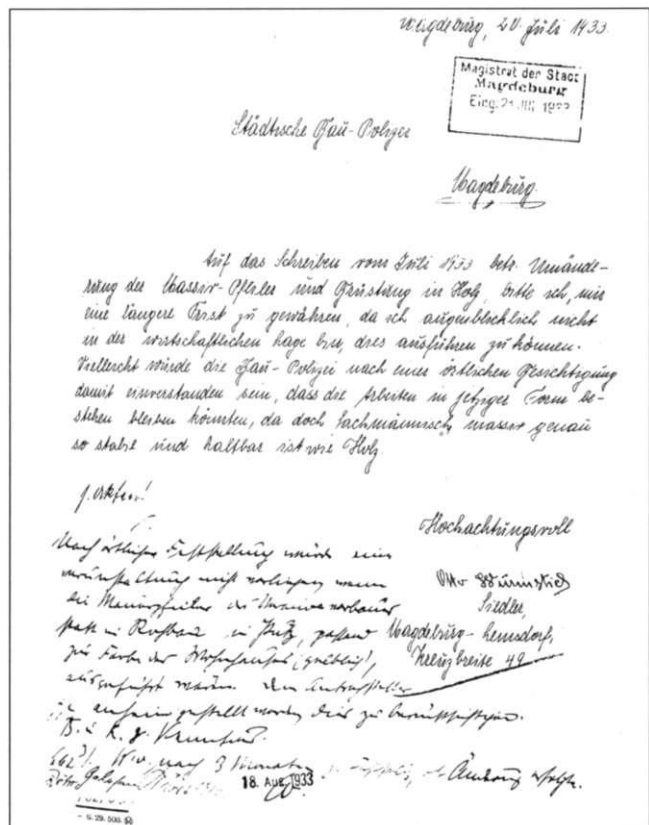 Magdeburg, 20. Juli 1933.
Magistrat der Stadt
Magdeburg
Eing. 21.
Städtische Bau-Polizei
Magdeburg.
Auf das Schreiben vom Juli 1933 betr. Umände-
rung der Massiv-Pfeiler und Brüstung in Holz, bitte ich, mir
eine längere Frist zu gewähren, da ich augenblicklich nicht
in der wirtschaftlichen Lage bin, dies ausführen zu können.
Vielleicht würde die Bau-Polizei nach einer örtlichen Besichtigung
damit einverstanden sein, dass die Arbeiten in jetziger Form be-
stehen bleiben könnten, da doch fachmännisch massiv genau
so stabil und haltbar ist wie Holz.
Hochachtungsvoll
Otto
Siedler,
Magdeburg-Lemsdorf,
Kreuzbreite 49
Nach örtlicher Feststellung würde eine
Verunstaltung nicht vorliegen wenn
die Mauerpfeiler der
statt in Rohbau in Putz, passend
zur Farbe des Wohnhauses
ausgeführt werden. Dem Antragsteller
anheim gestellt werden dies zu berücksichtigen.
nach 3 Monaten
18. Aug. 1933